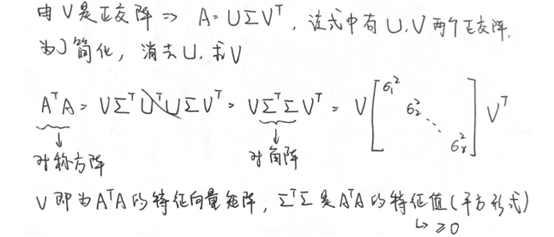 由V是正交阵 => A = UΣVᵀ, 该式中有U,V两个正交阵.
为了简化, 消去U, 求V
AᵀA = VΣᵀUᵀUΣVᵀ = VΣᵀΣVᵀ = V[σ₁² σ₂² ⋱ σᵣ²]Vᵀ
对称方阵 对角阵
V即为AᵀA的特征向量矩阵, ΣᵀΣ是AᵀA的特征值(平方形式)
↳ ≥0